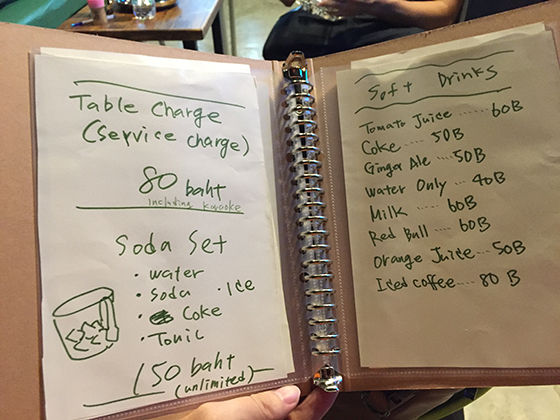 Table Charge
(service charge)
80 baht
including karaoke
Soda Set
• water
• Soda • Ice
• Coke
• Tonic
150 baht
(unlimited)
Soft Drinks
Tomato Juice ...... 60B
Coke ..... 50B
Ginga Ale ... 50B
Water Only ... 40B
Milk ..... 60B
Red Bull .... 60B
Orange Juice .... 50B
Iced coffee .... 80 B